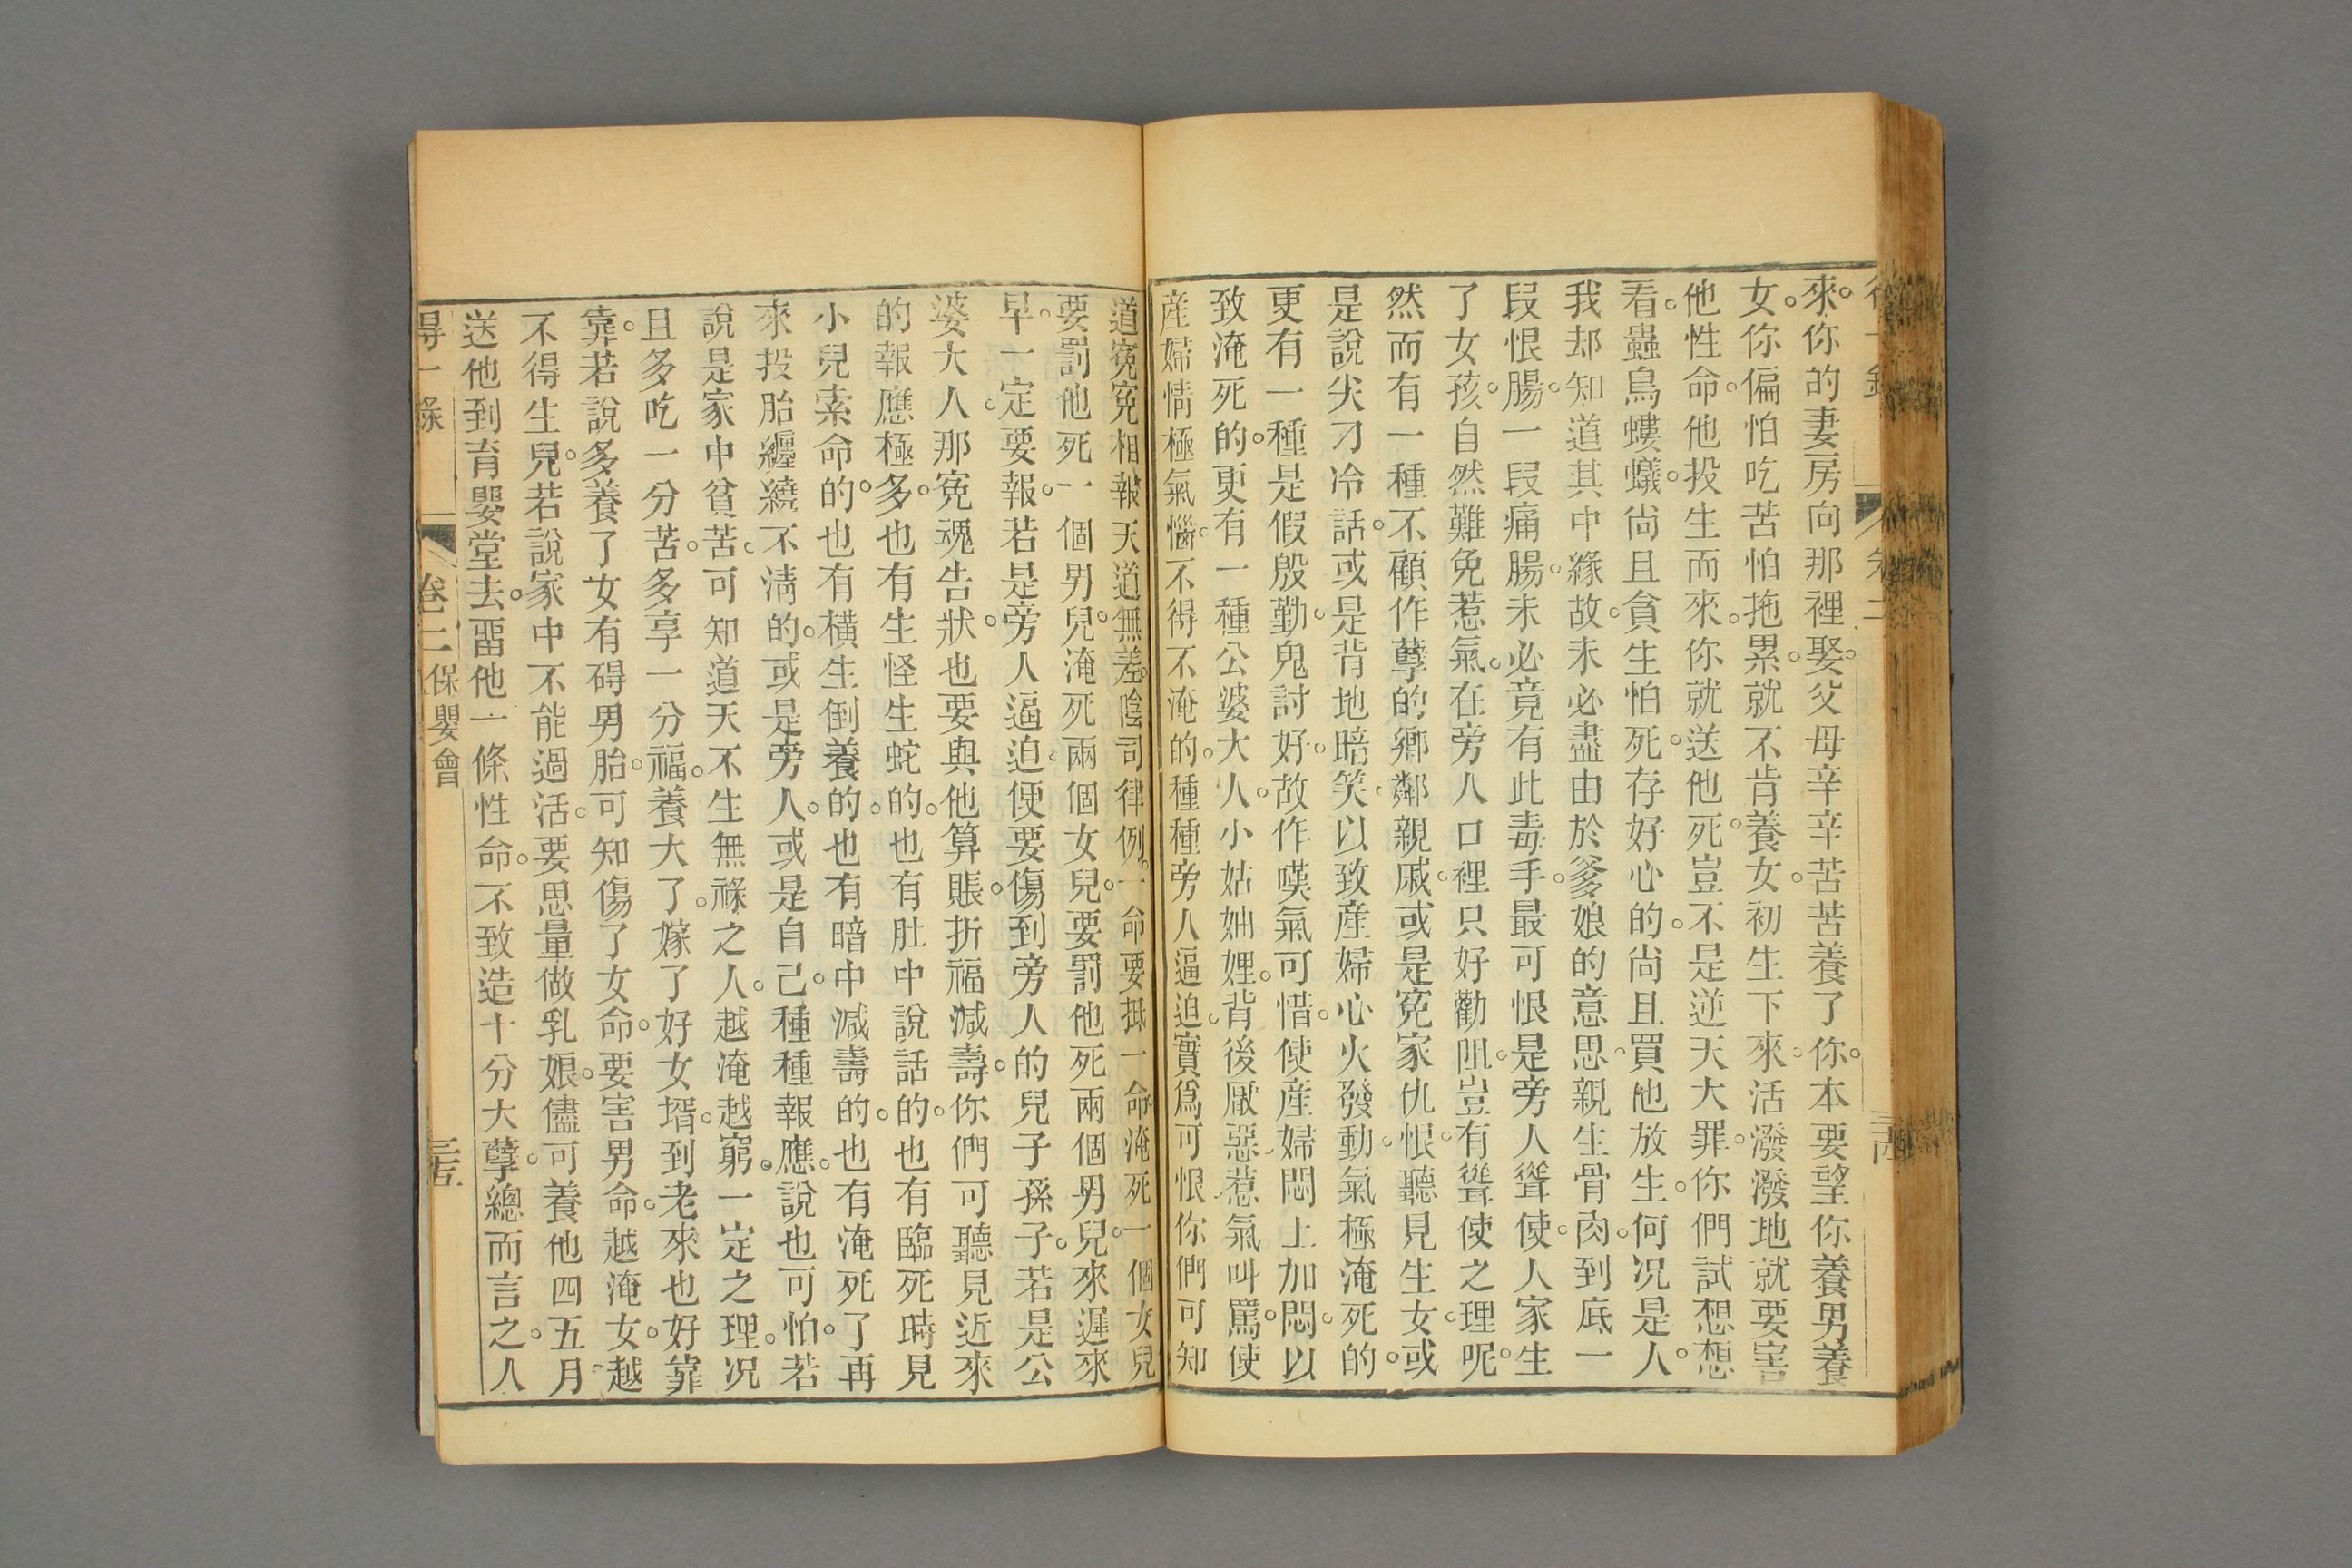 來。你的妻房向那裡娶。父母辛辛苦苦養了你。本要望你養男養
女。你偏怕吃苦怕拖累。就不肯養女。初生下來。活潑潑地就要害
他性命。他投生而來。你就送他死。豈不是逆天大罪。你們試想想
看。蟲鳥螻蟻。尚且貪生怕死。存好心的。尚且買他放生。何况是人。
我却知道其中緣故。未必盡由於爹娘的意思。親生骨肉。到底一
段恨腸。一段痛腸。未必竟有此毒手。最可恨是旁人聳使。人家生
了女孩。自然難免惹氣。在旁人口裡只好勸阻。豈有聳使之理呢。
然而有一種不顧作孽的鄉鄰親戚。或是寃家仇恨。聽見生女。或
是說尖刁冷話。或是背地暗笑。以致産婦心火發動。氣極淹死的。
更有一種是假殷勤。鬼討好。故作嘆氣可惜。使産婦悶上加悶。以
致淹死的。更有一種公婆大人。小姑妯娌。背後厭惡。惹氣叫罵。使
産婦情極氣惱。不得不淹的。種種旁人逼迫。實爲可恨你們可知
道寃寃相報天道無差。陰司律例。一命要抵一命淹死一個女兒
要罰他死一個男兒。淹死兩個女兒。要罰他死兩個男兒。來遲來
早。一定要報。若是旁人逼迫。便要傷到旁人的兒子孫子。若是公
婆大人。那寃魂告狀。也要與他算賬。折福減壽。你們可聽見近來
的報應極多。也有生怪生蛇的。也有肚中說話的。也有臨死時見
小兒索命的。也有橫生倒養的。也有暗中減壽的。也有淹死了再
來投胎纏繞不清的。或是旁人。或是自己。種種報應。說也可怕。若
說是家中貧苦。可知道天不生無祿之人。越淹越窮。一定之理。况
且多吃一分苦。多享一分福。養大了。嫁了好女壻。到老來也好靠
靠。若說多養了女有碍男胎。可知傷了女命。要害男命。越淹女。越
不得生兒。若說家中不能過活。要思量做乳娘。儘可養他四五月。
送他到育嬰堂去。畱他一條性命。不致造十分大孽。總而言之。人
得一錄 卷二 保嬰會